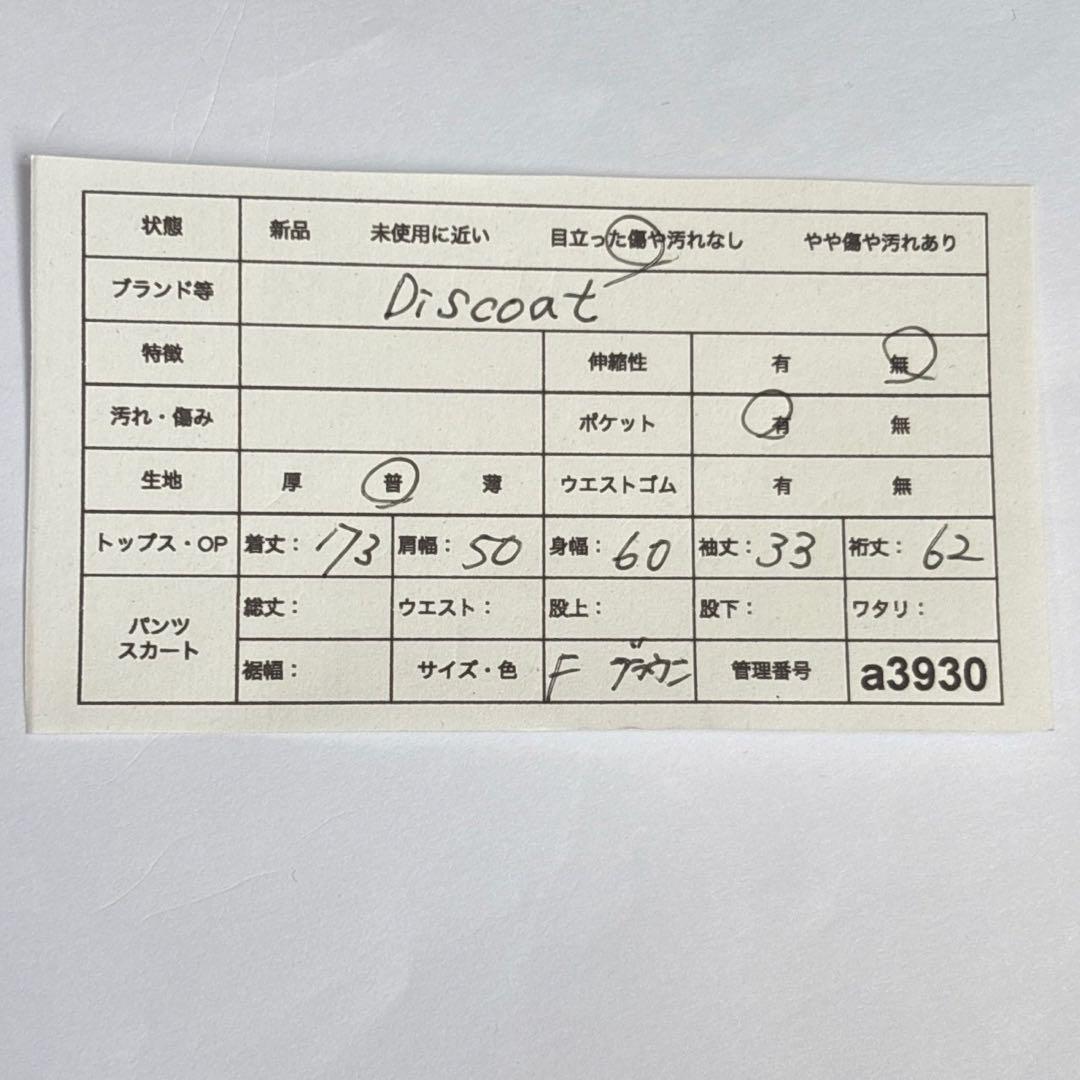 状態 新品 未使用に近い 目立った傷や汚れなし やや傷や汚れあり
ブランド等 Discoat
特徴 伸縮性 有 無
汚れ・傷み ポケット 有 無
生地 厚 普 薄 ウエストゴム 有 無
トップス・OP 着丈: 173 肩幅: 50 身幅: 60 袖丈: 33 裄丈: 62
パンツ スカート 総丈: ウエスト: 股上: 股下: ワタリ:
裾幅: サイズ・色 F ブラウン 管理番号 a3930